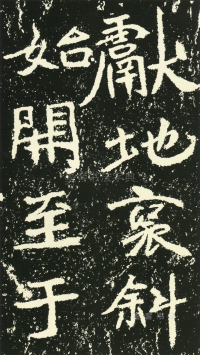 獻地褒斜
始開至于